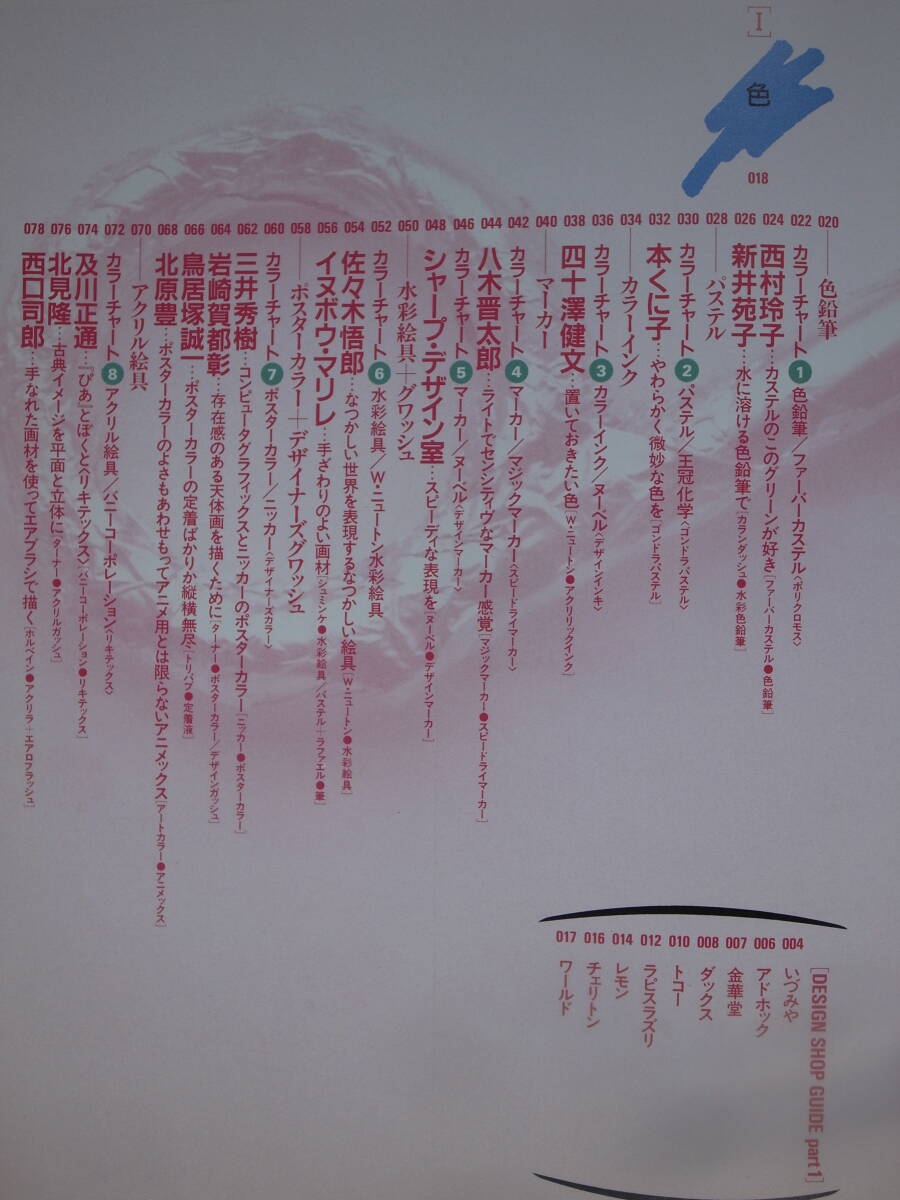 [I]
色
018
020——色鉛筆
022 カラーチャート1 色鉛筆/ファーバーカステル〈ポリークロモス〉
024 西村玲子…カステルのこのグリーンが好き[ファーバーカステル●色鉛筆]
026 新井苑子…水に溶ける色鉛筆で[カランダッシュ●水彩色鉛筆]
028——パステル
030 カラーチャート2 パステル/王冠化学〈ゴンドラパステル〉
032 本くに子…やわらかく微妙な色を[ゴンドラパステル]
034——カラーインク
036 カラーチャート3 カラーインク/ヌーベル〈デザインインキ〉
038 四十澤健文…置いておきたい色[W・ニュートン●アクリックインク]
040——マーカー
042 カラーチャート4 マーカー/マジックマーカー〈スピードライマーカー〉
044 八木晋太郎…ライトでセンシティヴなマーカー感覚[マジックマーカー●スピードライマーカー]
046 カラーチャート5 マーカー/ヌーベル〈デザインマーカー〉
048 シャープ・デザイン室…スピーディな表現を[ヌーベル●デザインマーカー]
050——水彩絵具+グワッシュ
052 カラーチャート6 水彩絵具/W・ニュートン水彩絵具
054 佐々木悟郎…なつかしい世界を表現するなつかしい絵具[W・ニュートン●水彩絵具]
056 イヌボウ・マリレ…手ざわりのよい画材[シュミンケ●水彩絵具/パステル+ラファエル●筆]
058——ポスターカラー+デザイナーズグワッシュ
060 カラーチャート7 ポスターカラー/ニッカー〈デザイナーズカラー〉
062 三井秀樹…コンピュータグラフィックスとニッカーのポスターカラー[ニッカー●ポスターカラー]
064 岩崎賀都彰…存在感のある天体画を描くために[ターナー●ポスターカラー/デザインガッシュ]
066 鳥居塚誠一…ポスターカラーの定着ばかりか縦横無尽[トリパブ●定着液]
068 北原豊…ポスターカラーのよさもあわせもってアニメ用とは限らないアニメックス[アートカラー●アニメックス]
070——アクリル絵具
072 カラーチャート8 アクリル絵具/バニーコーポレーション〈リキテックス〉
074 及川正通…『ぴあ』とぼくとヘリキテックス〉[バニーコーポレーション●リキテックス]
076 北見隆…古典イメージを平面と立体に[ターナー●アクリルガッシュ]
078 西口司郎…手なれた画材を使ってエアブラシで描く[ホルベイン●アクリラ+エアロフラッシュ]
[DESIGN SHOP GUIDE part 1]
004 いづみや
006 アドホック
007 金華堂
008 ダックス
010 トコー
012 ラピスラズリ
014 レモン
016 チェリトン
017 ワールド